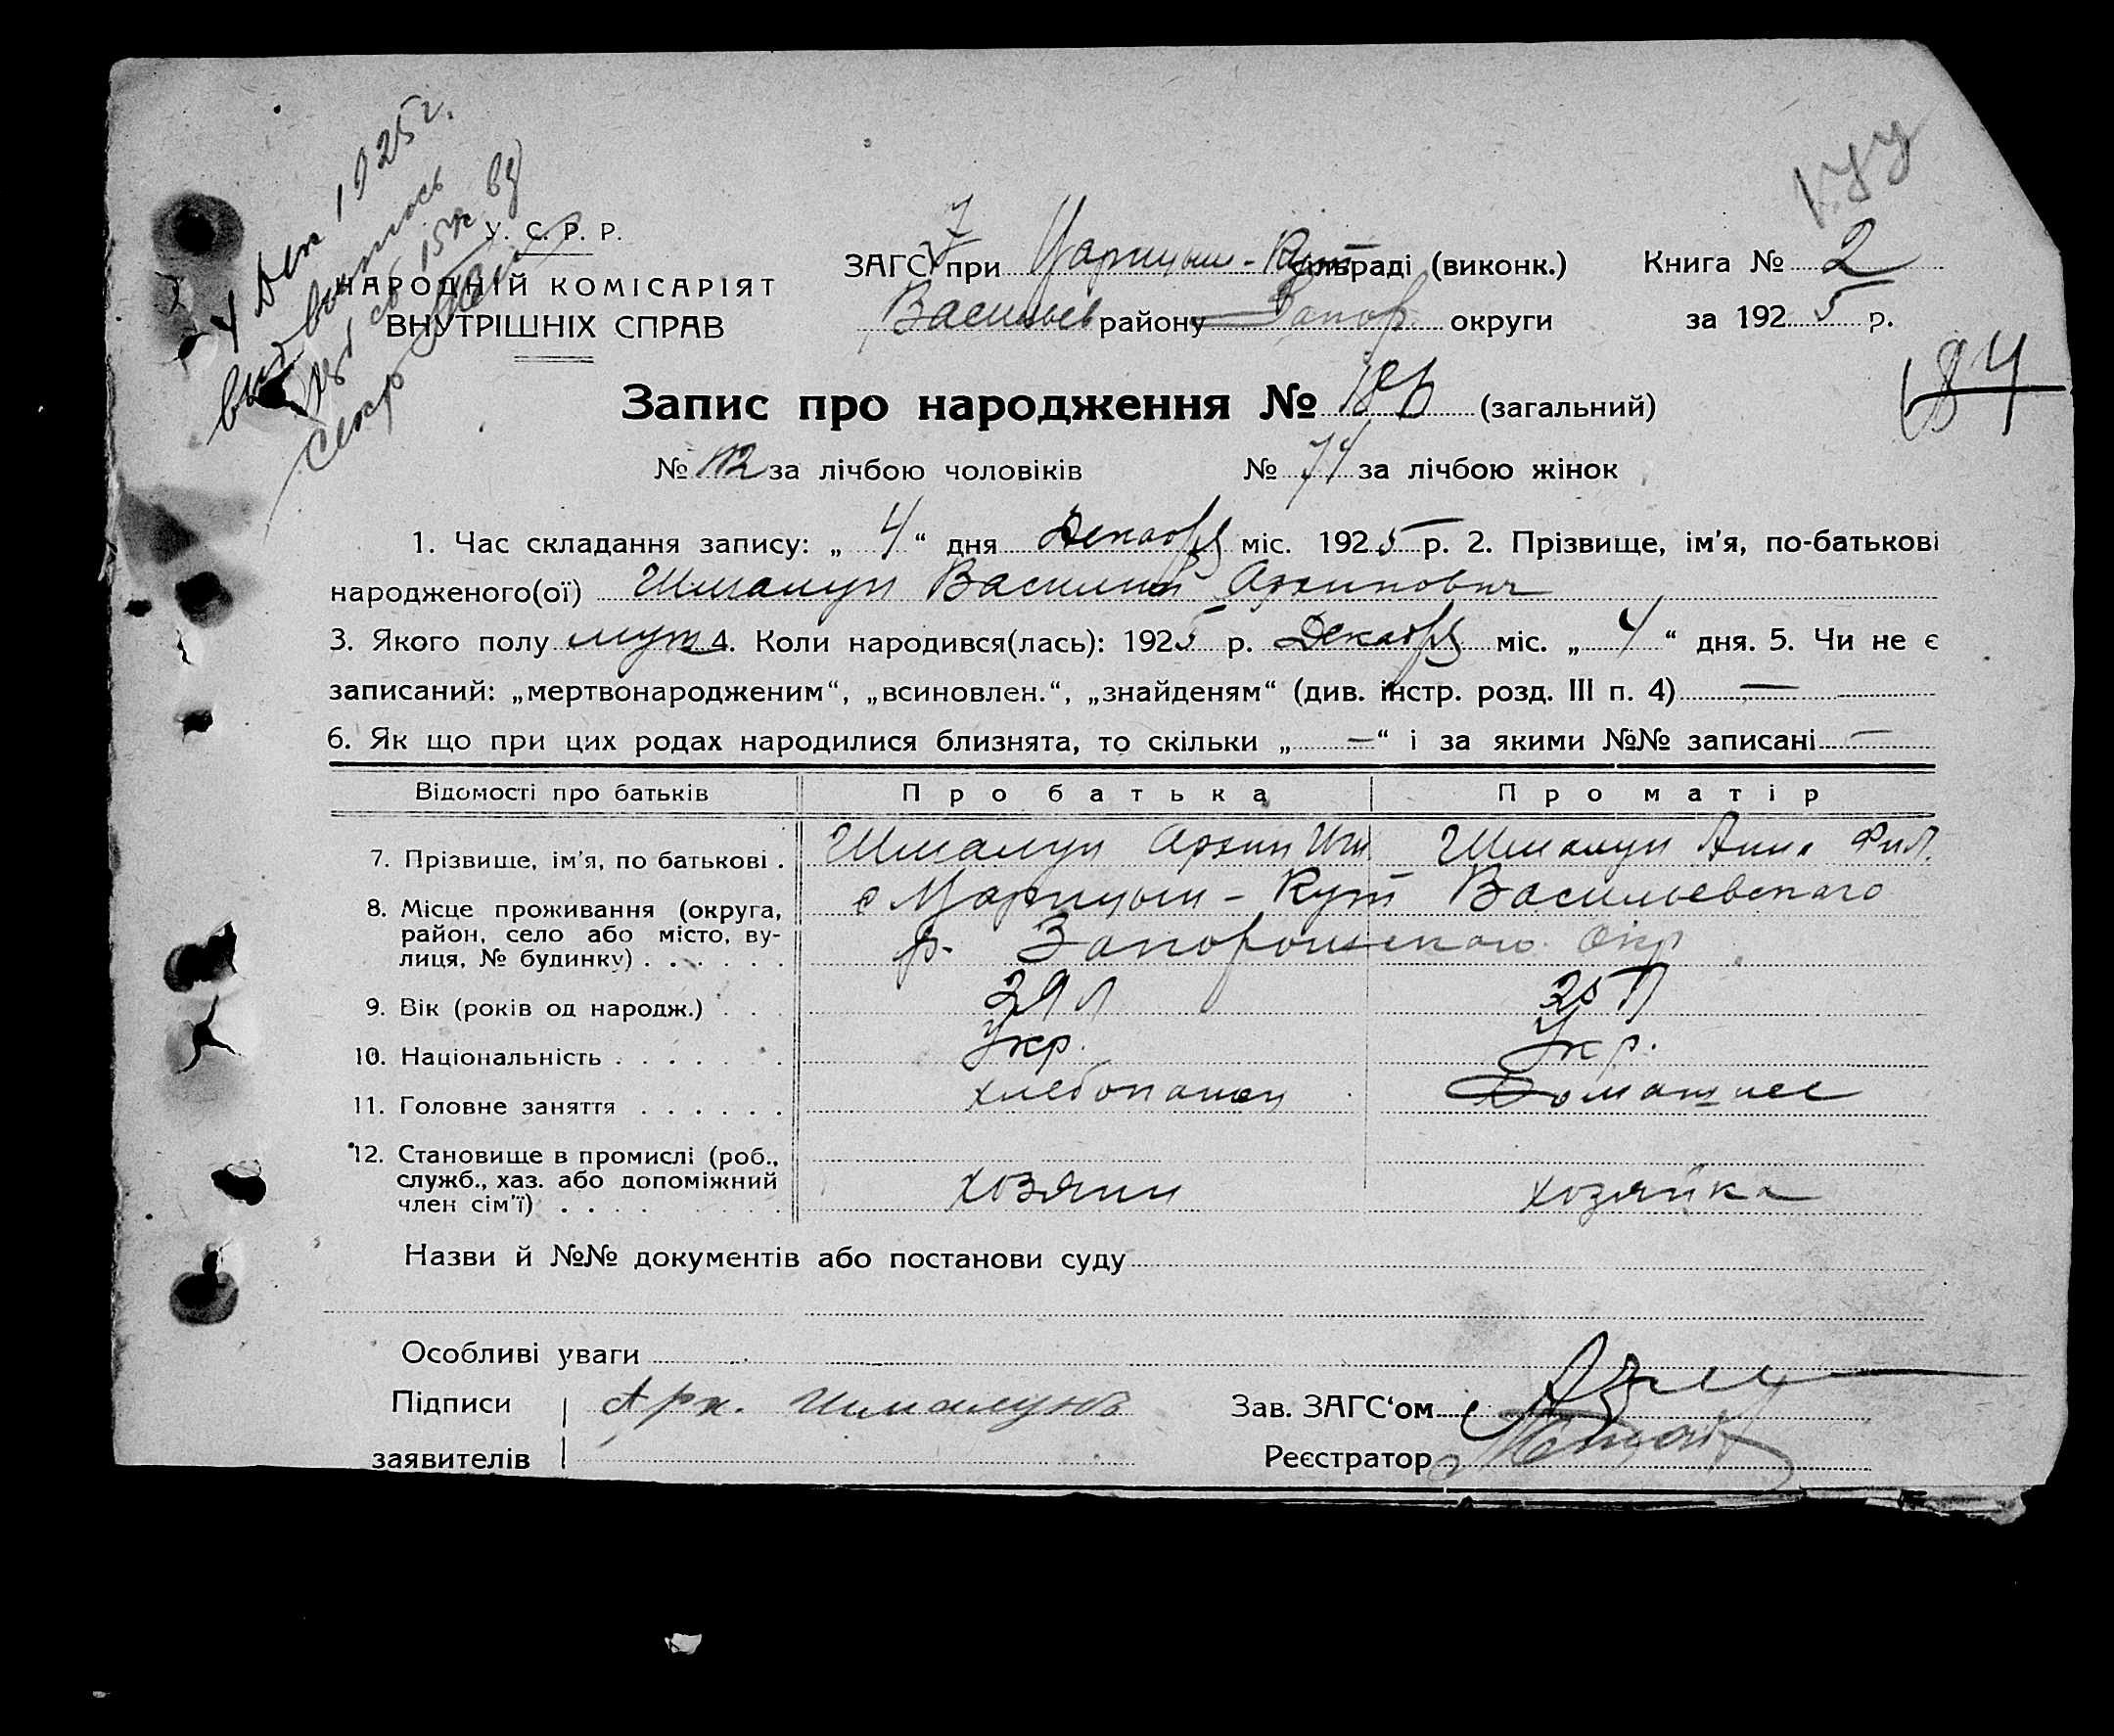 4 Дек 1925 г.
У. С. Р. Р.
НАРОДНІЙ КОМІСАРІЯТ
ВНУТРІШНІХ СПРАВ
ЗАГС при Царицын-Кут сільраді (виконк.)
Васильев району Запор. округи
Книга № 2
за 1925 р.
184
Запис про народження № (загальний)
№ 112 за лічбою чоловіків № 74 за лічбою жінок
1. Час складання запису: „ 4 “ дня Декабря міс. 1925 р. 2. Прізвище, ім’я, по-батькові
народженого(ої) Шмалун Василий Архипович
3. Якого полу муж 4. Коли народився(лась): 1925 р. Декабря міс. „ 4 “ дня. 5. Чи не є
записаний: „мертвонародженим“, „всиновлен.“, „знайденям“ (див. інстр. розд. III п. 4) —
6. Як що при цих родах народилися близнята, то скільки „ — “ і за якими №№ записані —
Відомості про батьків Про батька Про матір
7. Прізвище, ім’я, по батькові . Шмалун Архип Шмалун Анна Фил.
8. Місце проживання (округа, с Царицын-Кут Васильевского
район, село або місто, ву- р. Запорожского Окр
лиця, № будинку) . . . . . .
9. Вік (років од народж.) . . . 29 л 25 л
10. Національність . . . . . . . Укр. Укр.
11. Головне заняття . . . . . . хлебопашец Домашнее
12. Становище в промислі (роб.,
служб., хаз. або допоміжний хозяин хозяйка
член сім’ї) . . . .
Назви й №№ документів або постанови суду
Особливі уваги
Підписи Арх. Шмалунъ Зав. ЗАГС‘ом
заявителів Реєстратор